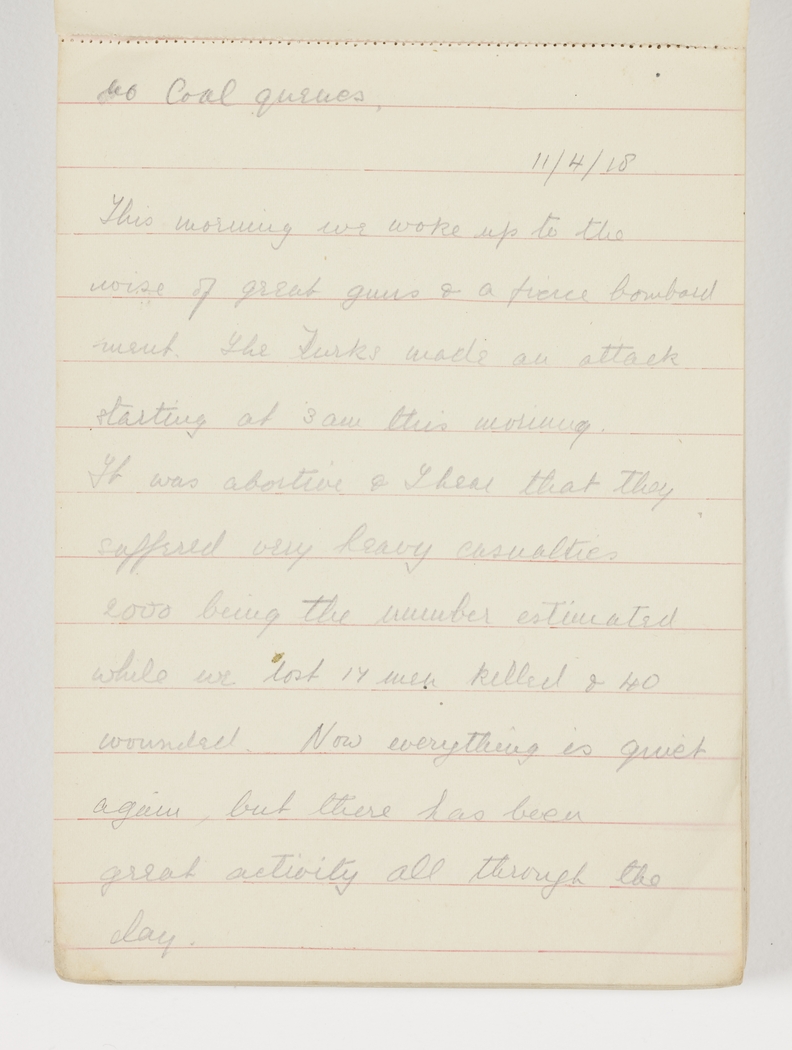 no Coal queues,
11/4/18
This morning we woke up to the
noise of great guns & a fierce bombard
ment. The Turks made an attack
starting at 3 am this morning.
It was abortive & I hear that they
suffered very heavy casualties
2000 being the number estimated
while we lost 14 men killed & 40
wounded. Now everything is quiet
again, but there has been
great activity all through the
day.